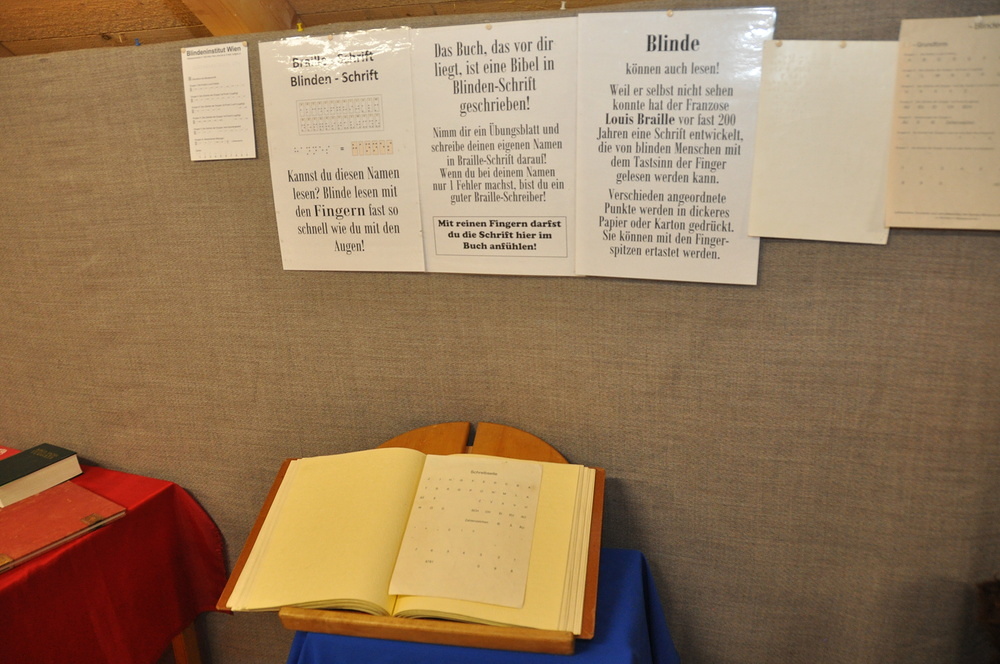 Blindeninstitut Wien
Braille - Schrift
Blinden - Schrift
=
Kannst du diesen Namen
lesen? Blinde lesen mit
den Fingern fast so
schnell wie du mit den
Augen!
Das Buch, das vor dir
liegt, ist eine Bibel in
Blinden-Schrift
geschrieben!
Nimm dir ein Übungsblatt und
schreibe deinen eigenen Namen
in Braille-Schrift darauf!
Wenn du bei deinem Namen
nur 1 Fehler machst, bist du ein
guter Braille-Schreiber!
Mit reinen Fingern darfst
du die Schrift hier im
Buch anfühlen!
Blinde
können auch lesen!
Weil er selbst nicht sehen
konnte hat der Franzose
Louis Braille vor fast 200
Jahren eine Schrift entwickelt,
die von blinden Menschen mit
dem Tastsinn der Finger
gelesen werden kann.
Verschieden angeordnete
Punkte werden in dickeres
Papier oder Karton gedrückt.
Sie können mit den Finger-
spitzen ertastet werden.